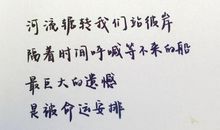 河流辗转我们站彼岸
隔着时间呼喊等不来的船
最巨大的遗憾
是被命运安排